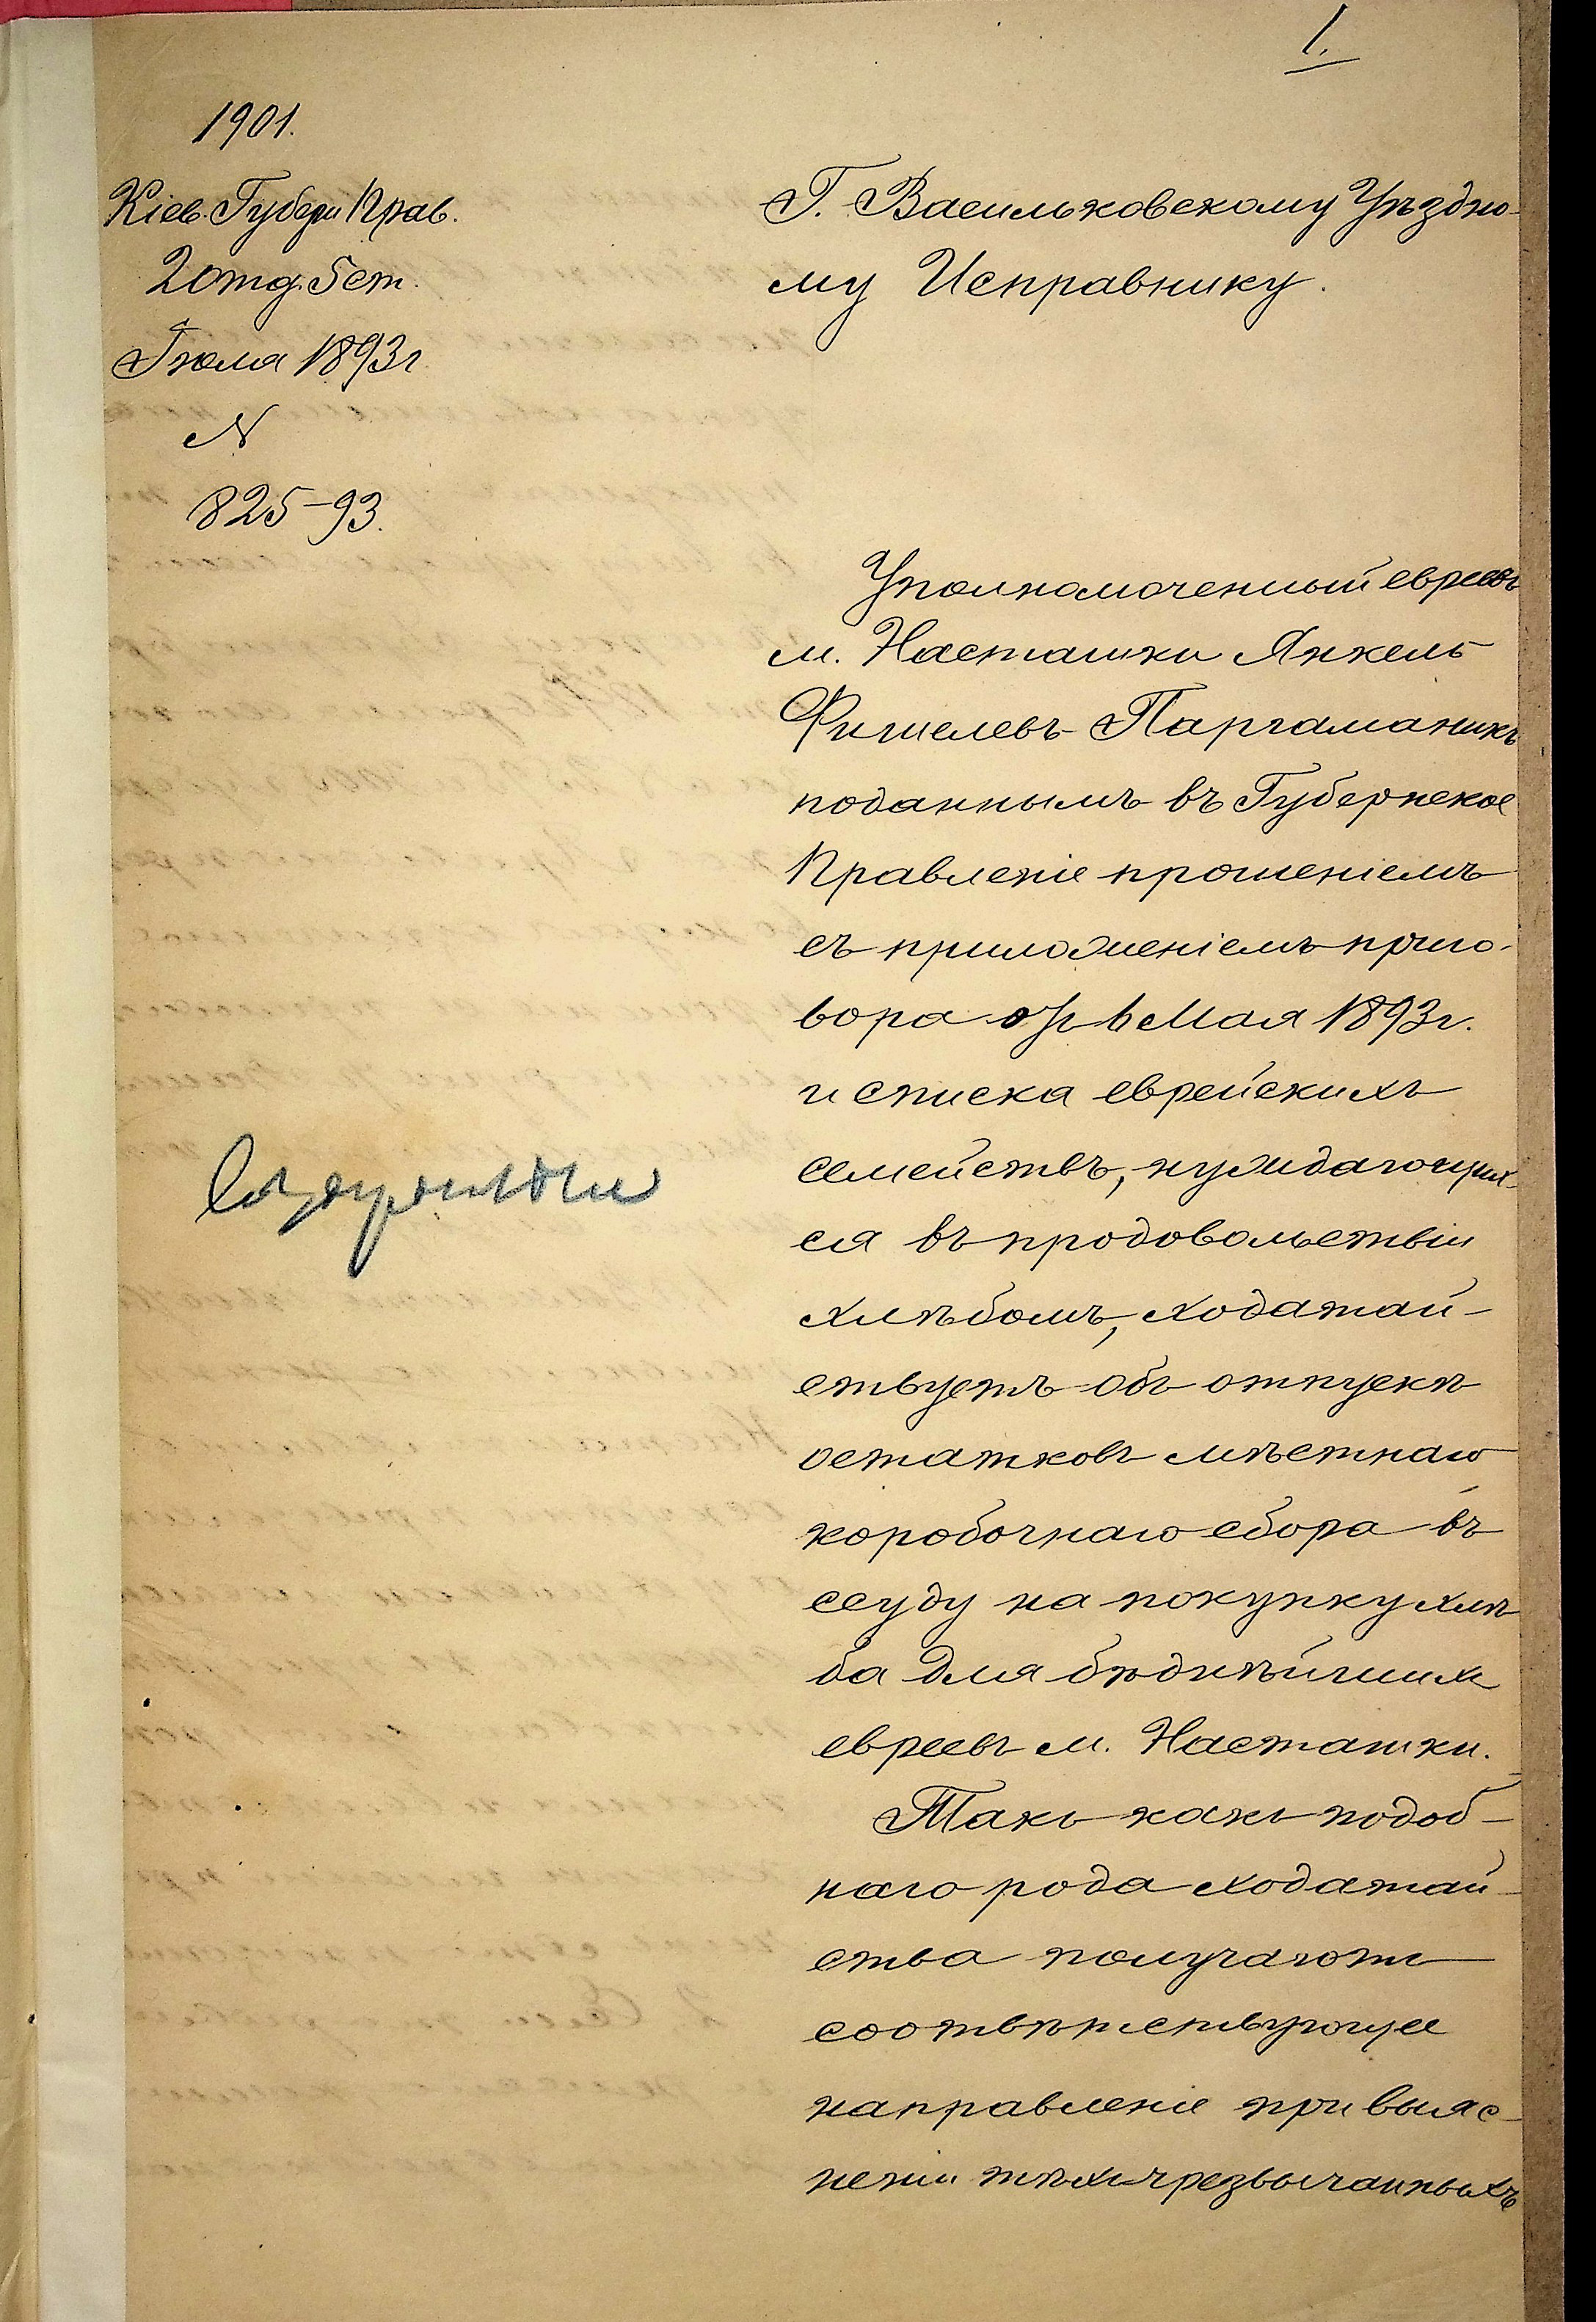 1.
1901.
Кіев. Губерн Прав.
2 отд. 5 ст.
Іюля 1893 г
N
825-93.
Г. Васильковскому Уѣздно-
му Исправнику.
Уполномоченный евреевъ
м. Насташки Янкель
Фишелевъ Паргаманикъ
поданнымъ въ Губернское
Правленіе прошеніемъ
съ приложеніемъ приго-
вора отъ 6 Мая 1893 г.
и списка еврейскихъ
семействъ, нуждающих-
ся въ продовольствіи
хлѣбомъ, ходатай-
ствуетъ объ отпускѣ
остатковъ мѣстнаго
коробочнаго сбора въ
ссуду на покупку хлѣ
ба для бѣднѣйших
евреевъ м. Насташки.
Такъ какъ подоб-
наго рода ходатай-
ства получаютъ
соотвѣтствующее
направленіе при выяс-
неніи тѣхъ чрезвычайныхъ